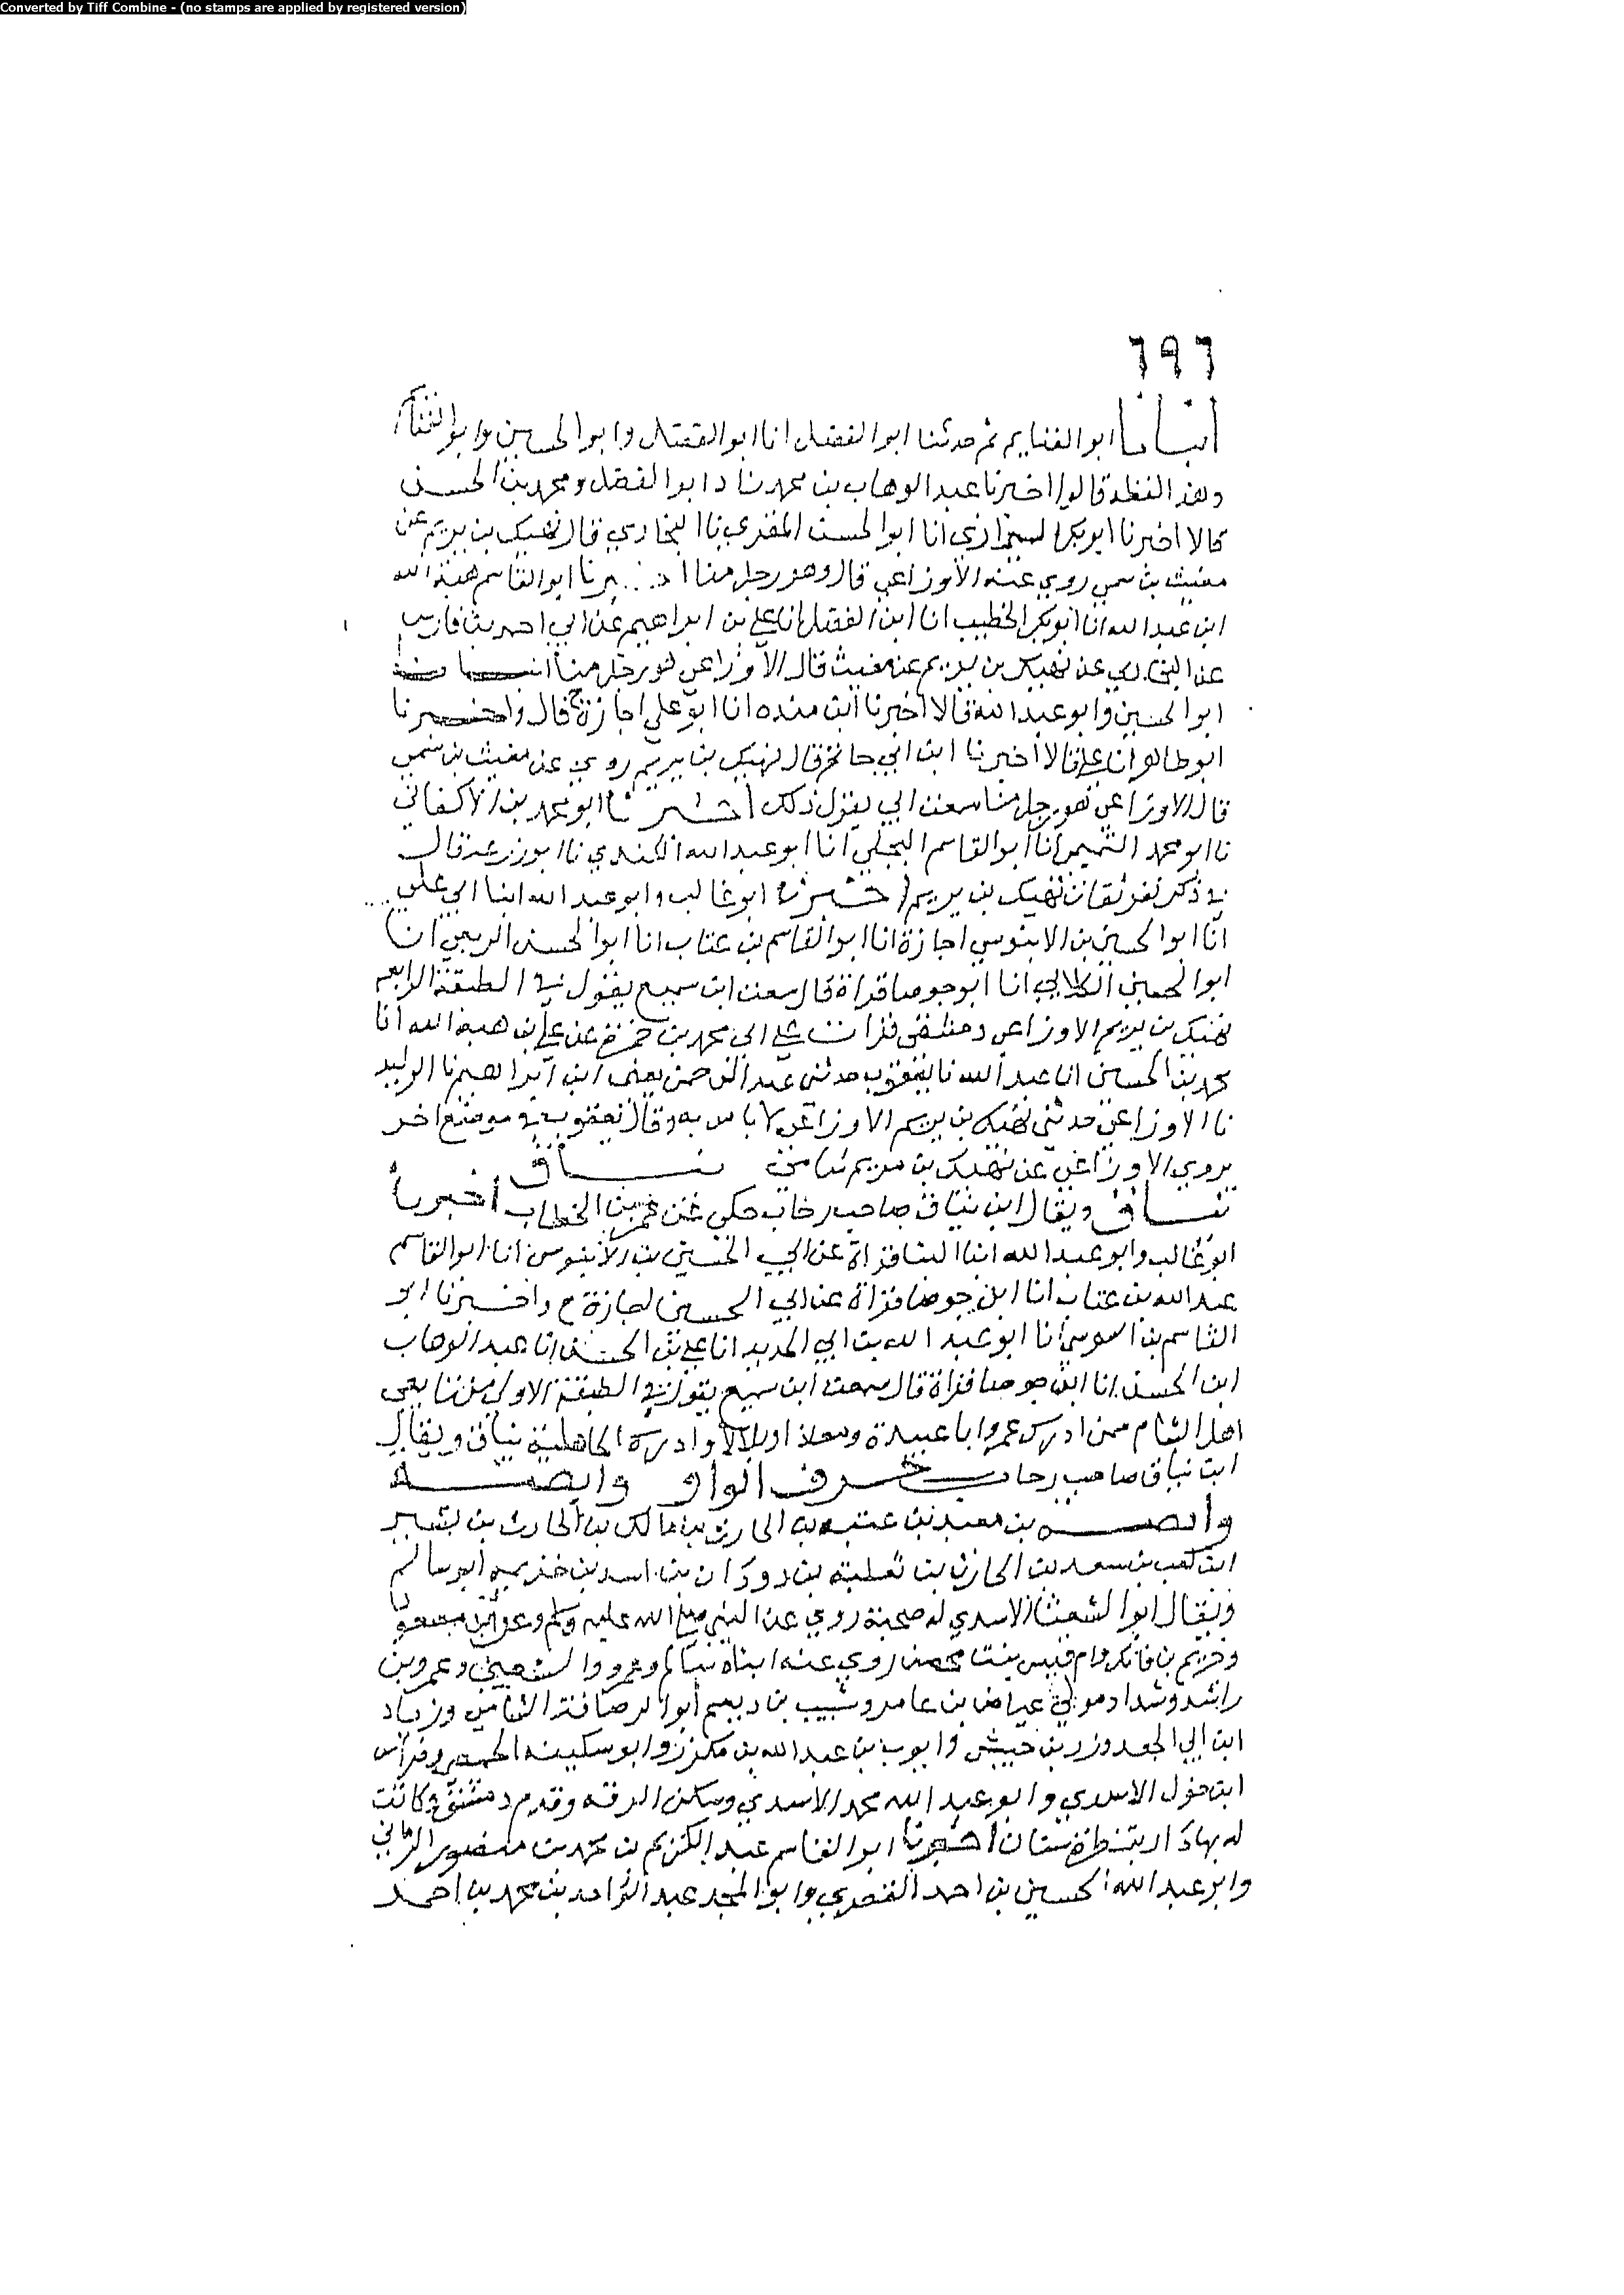 Converted by Tiff Combine - (no stamps are applied by registered version)
٦٩٦
انبانا ابو الغنايم ثم حدثنا ابو الفضل انا ابو الفضل وابو الحسين وابو الغنائم
وهذا لفظه قالوا اخبرنا عبد الوهاب بن محمد زاد ابو الفضل ومحمد بن الحسن
قالا اخبرنا ابو بكر الشيرازي انا ابو الحسن المقري نا البخاري قال نهيك بن يريم عن
مغيث بن سمي روي عنه الاوزاعي قال وهو رجل منا اخبرنا ابو القاسم هبة الله
ابن عبد الله انا ابو بكر الخطيب انا ابن الفضل انا علي بن ابراهيم عن ابي احمد بن فارس
عن البخاري عن نهيك بن يريم عن مغيث قال الاوزاعي هو رجل منا
ابو الحسين وابو عبد الله قالا اخبرنا ابن منده انا ابو علي اجازة ح قال واخبرنا
ابو طاهر انا علي قالا اخبرنا ابن ابي حاتم قال نهيك بن يريم روي عن مغيث بن سمي
قال الاوزاعي هو رجل منا سمعت ابي يقول ذلك اخبرنا ابو محمد بن الاكفاني
نا ابو محمد التميمي انا ابو القاسم البجلي انا ابو عبد الله الكندي نا ابو زرعة قال
في ذكر نفر ثقات نهيك بن يريم اخبرنا ابو غالب وابو عبد الله ابنا ابي علي
انا ابو الحسين بن الابنوسي اجازة انا ابو القاسم بن عتاب انا ابو الحسن الربعي انا
ابو الحسين الكلابي انا ابو جوصا قراة قال سمعت ابن سميع يقول في الطبقة الرابعه
نهيك بن يريم الاوزاعي دمشقي قرات علي ابي محمد بن حمزة عن علي بن هبة الله انا
محمد بن الحسين انا عبد الله نا يعقوب حدثني عبد الرحمن يعني ابن ابراهيم نا الوليد
نا الاوزاعي حدثني نهيك بن يريم الاوزاعي لا باس به وقال يعقوب في موضع اخر
يروي الاوزاعي عن نهيك بن يريم شامي نيـــاق
نيـــاق ويقال ابن نياق صاحب رحاب حكي عن عمر بن الخطاب اخبرنا
ابو غالب وابو عبد الله ابنا البنا قراة عن ابي الحسين بن الابنوسي انا ابو القاسم
عبد الله بن عتاب انا ابن جوصا قراة عن ابي الحسين اجازة ح واخبرنا ابو
القاسم بن السوسي انا ابو عبد الله بن ابي الحديد انا علي بن الحسن انا عبد الوهاب
ابن الحسن انا ابن جوصا قراة قال سمعت ابن سميع يقول في الطبقة الاولي من تابعي
اهل الشام ممن ادرك عمر وابا عبيدة ومعاذ او بلالا وادرك الجاهلية نياق ويقال
ابن نياق صاحب رحاب حرف الواو وابصـــه
وابصـــه بن معبد بن عتبه بن الحارث بن مالك بن الحارث بن بشير
ابن كعب بن سعد بن الحارث بن ثعلبة بن دودان بن اسد بن خزيمه ابو سالم
ويقال ابو الشعثا الاسدي له صحبة روي عن النبي صلي الله عليه وسلم وعن ابن مسعود
وخريم بن فاتك وام قيس بنت محصن روي عنه ابناه سالم وعمرو والشعبي وعمرو بن
راشد وشداد مولي عياض بن عامر وشبيب بن ديسم ابو الرصافة الشامي وزياد
ابن ابي الجعد وزر بن حبيش وايوب بن عبد الله بن مكرز وابو سكينه الحمصي وفراس
ابن خول الاسدي وابو عبد الله محمد الاسدي وسكن الرقه وقدم دمشق وكانت
له بها دار بقنطرة سنان اخبرنا ابو القاسم عبد الكريم بن محمد بن منصور الرماني
وابو عبد الله الحسين بن احمد القصري وابو المجد عبد الواحد بن محمد بن احمد